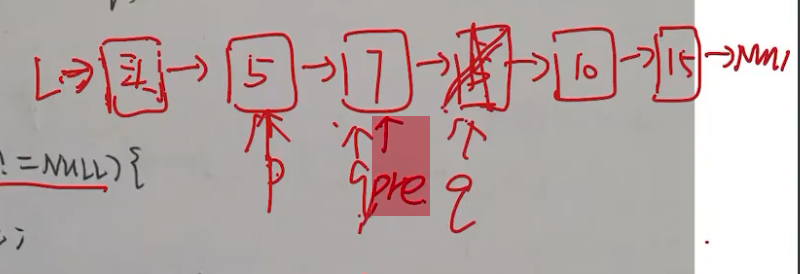 L → 头 → 5 → 7 → → 10 → 15 → NULL
p q pre q
!=NULL){
;